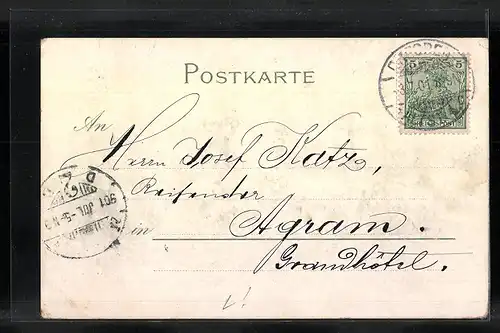 POSTKARTE
5 5
An
Herrn Josef Katz,
Reisender
in Agram.
Grandhôtel.
901 JUL